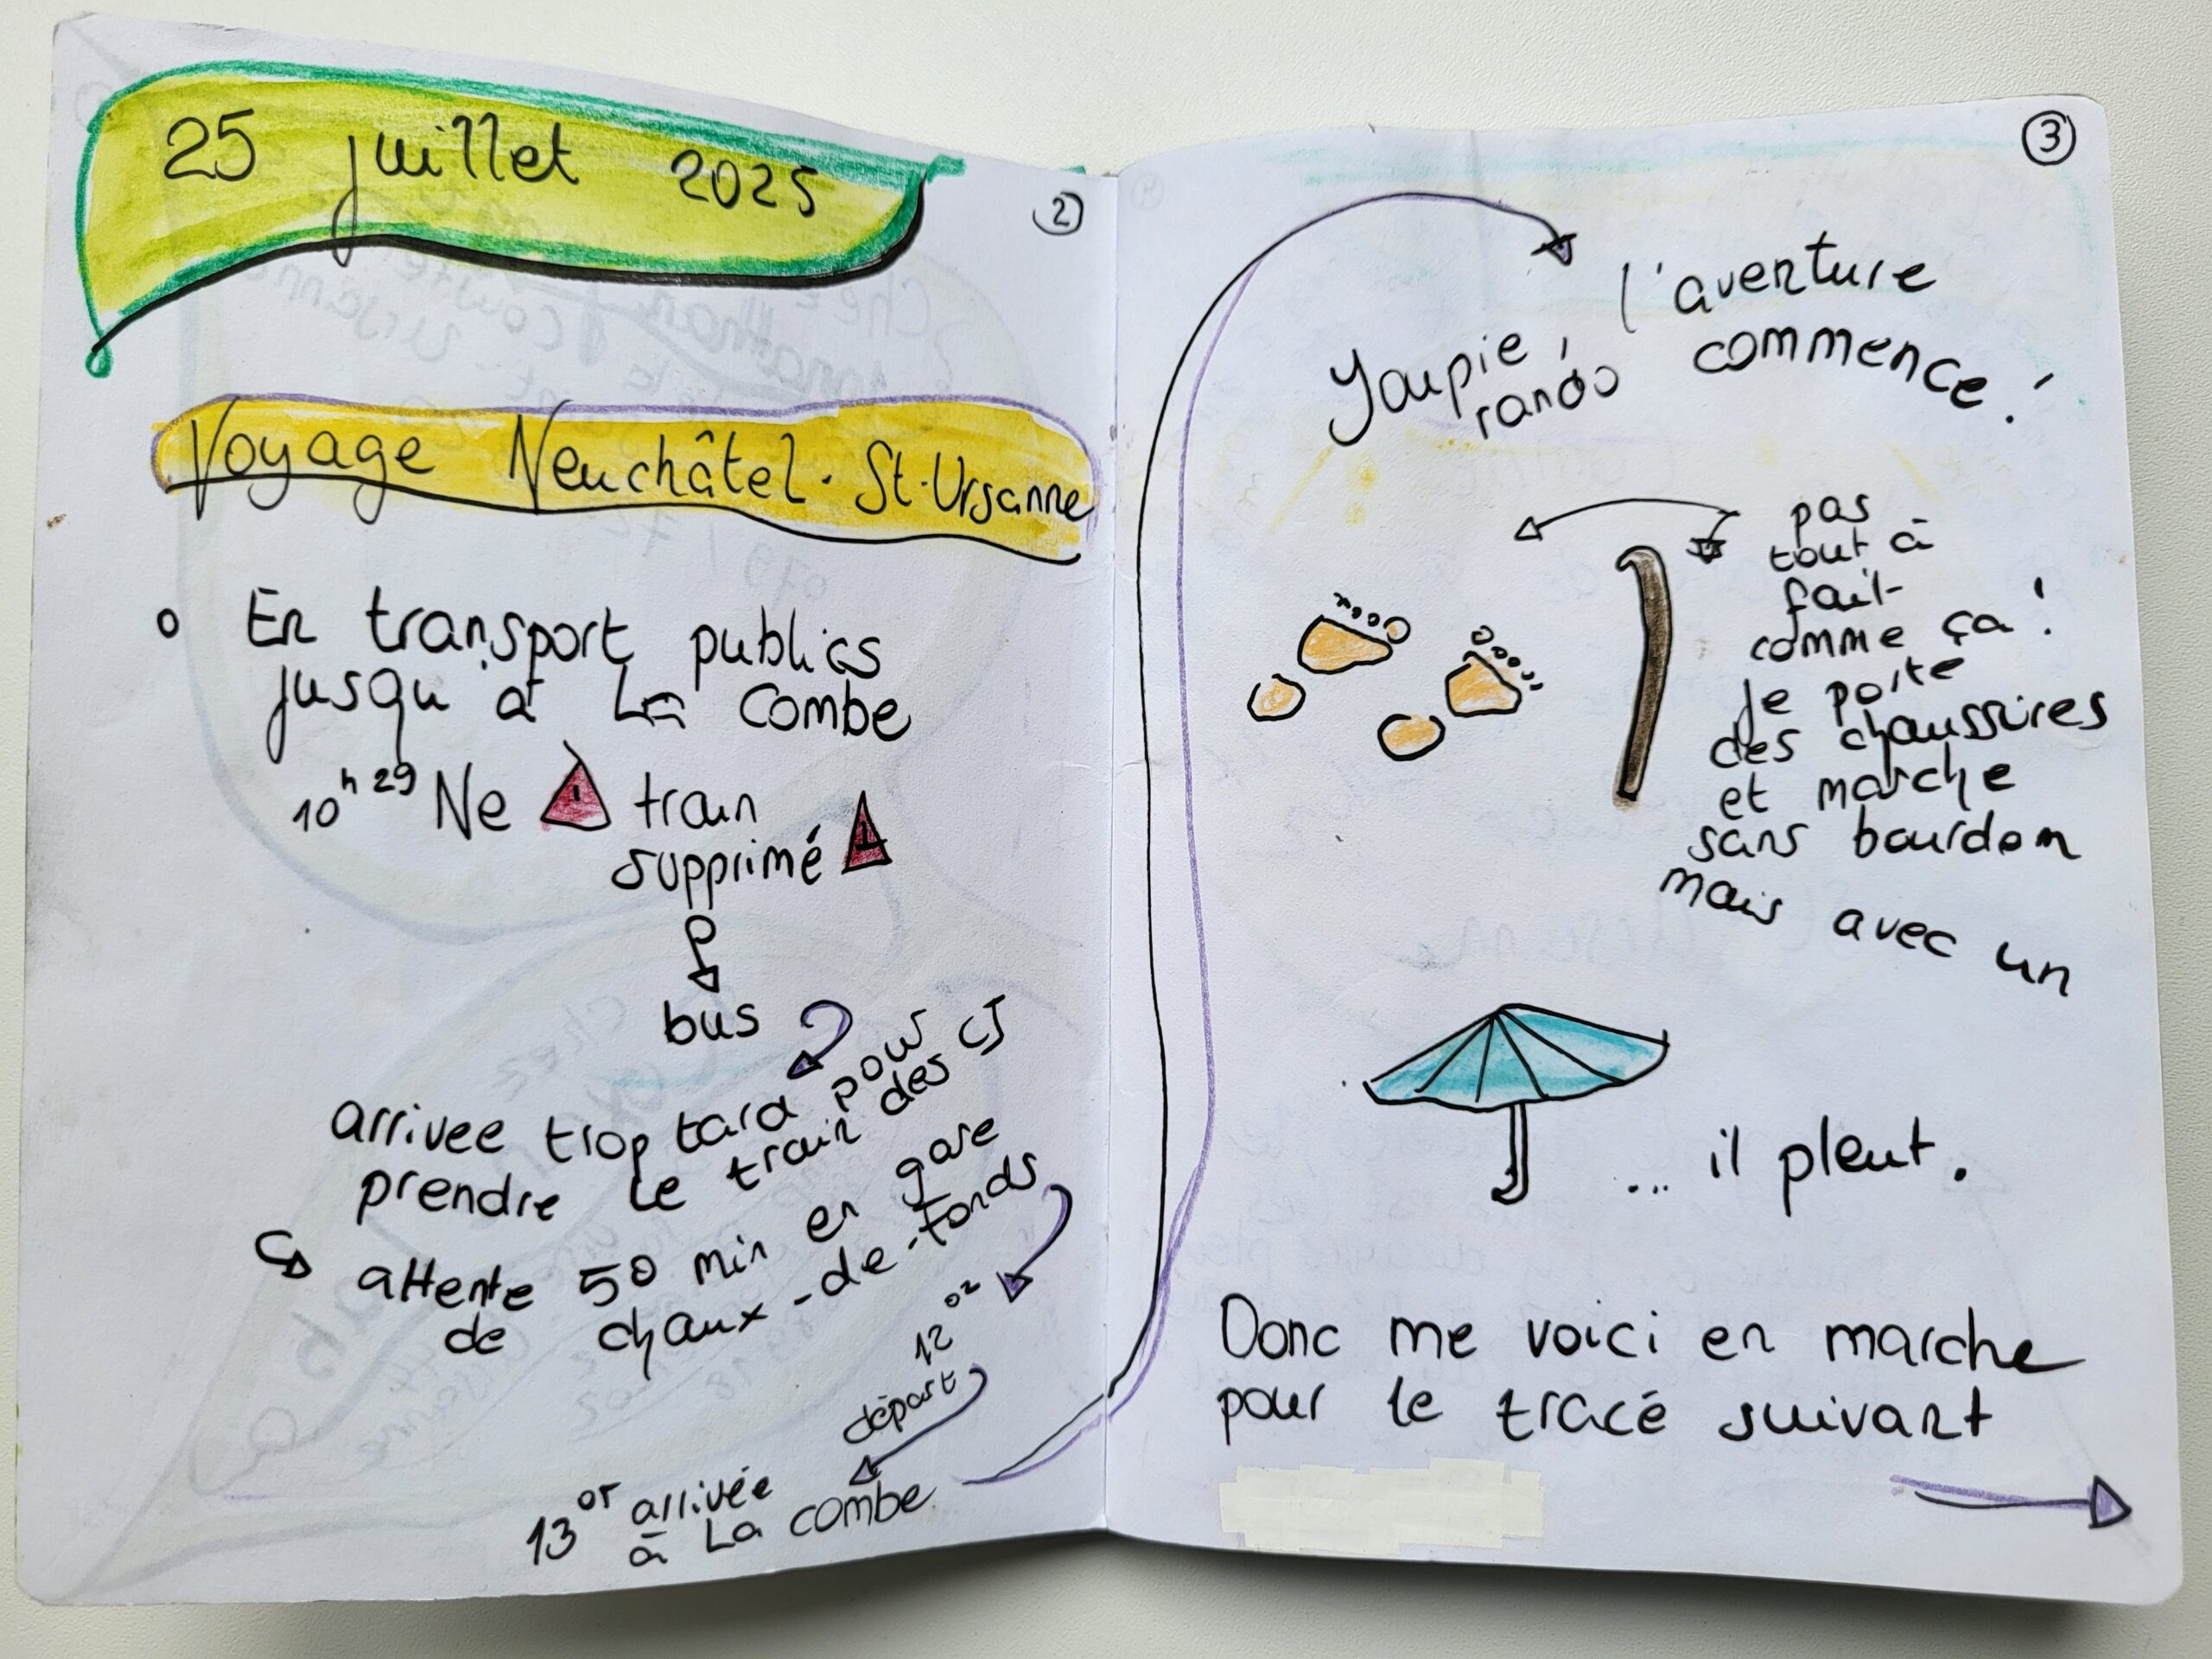 25 juillet 2025
②
Voyage Neuchâtel - St-Ursanne
o En transport publics
jusqu'à La Combe
10h29 Ne ! train
supprimé !
bus
arrivee trop tard pour
prendre le train des CJ
attente 50 min en gare
de chaux-de-fonds
12 02
départ
13 07 arrivée
à La combe
③
Youpie, l'aventure
rando commence !
pas
tout à
fait
comme ça !
Je porte
des chaussures
et marche
sans bourdon
mais avec un
... il pleut.
Donc me voici en marche
pour le tracé suivant